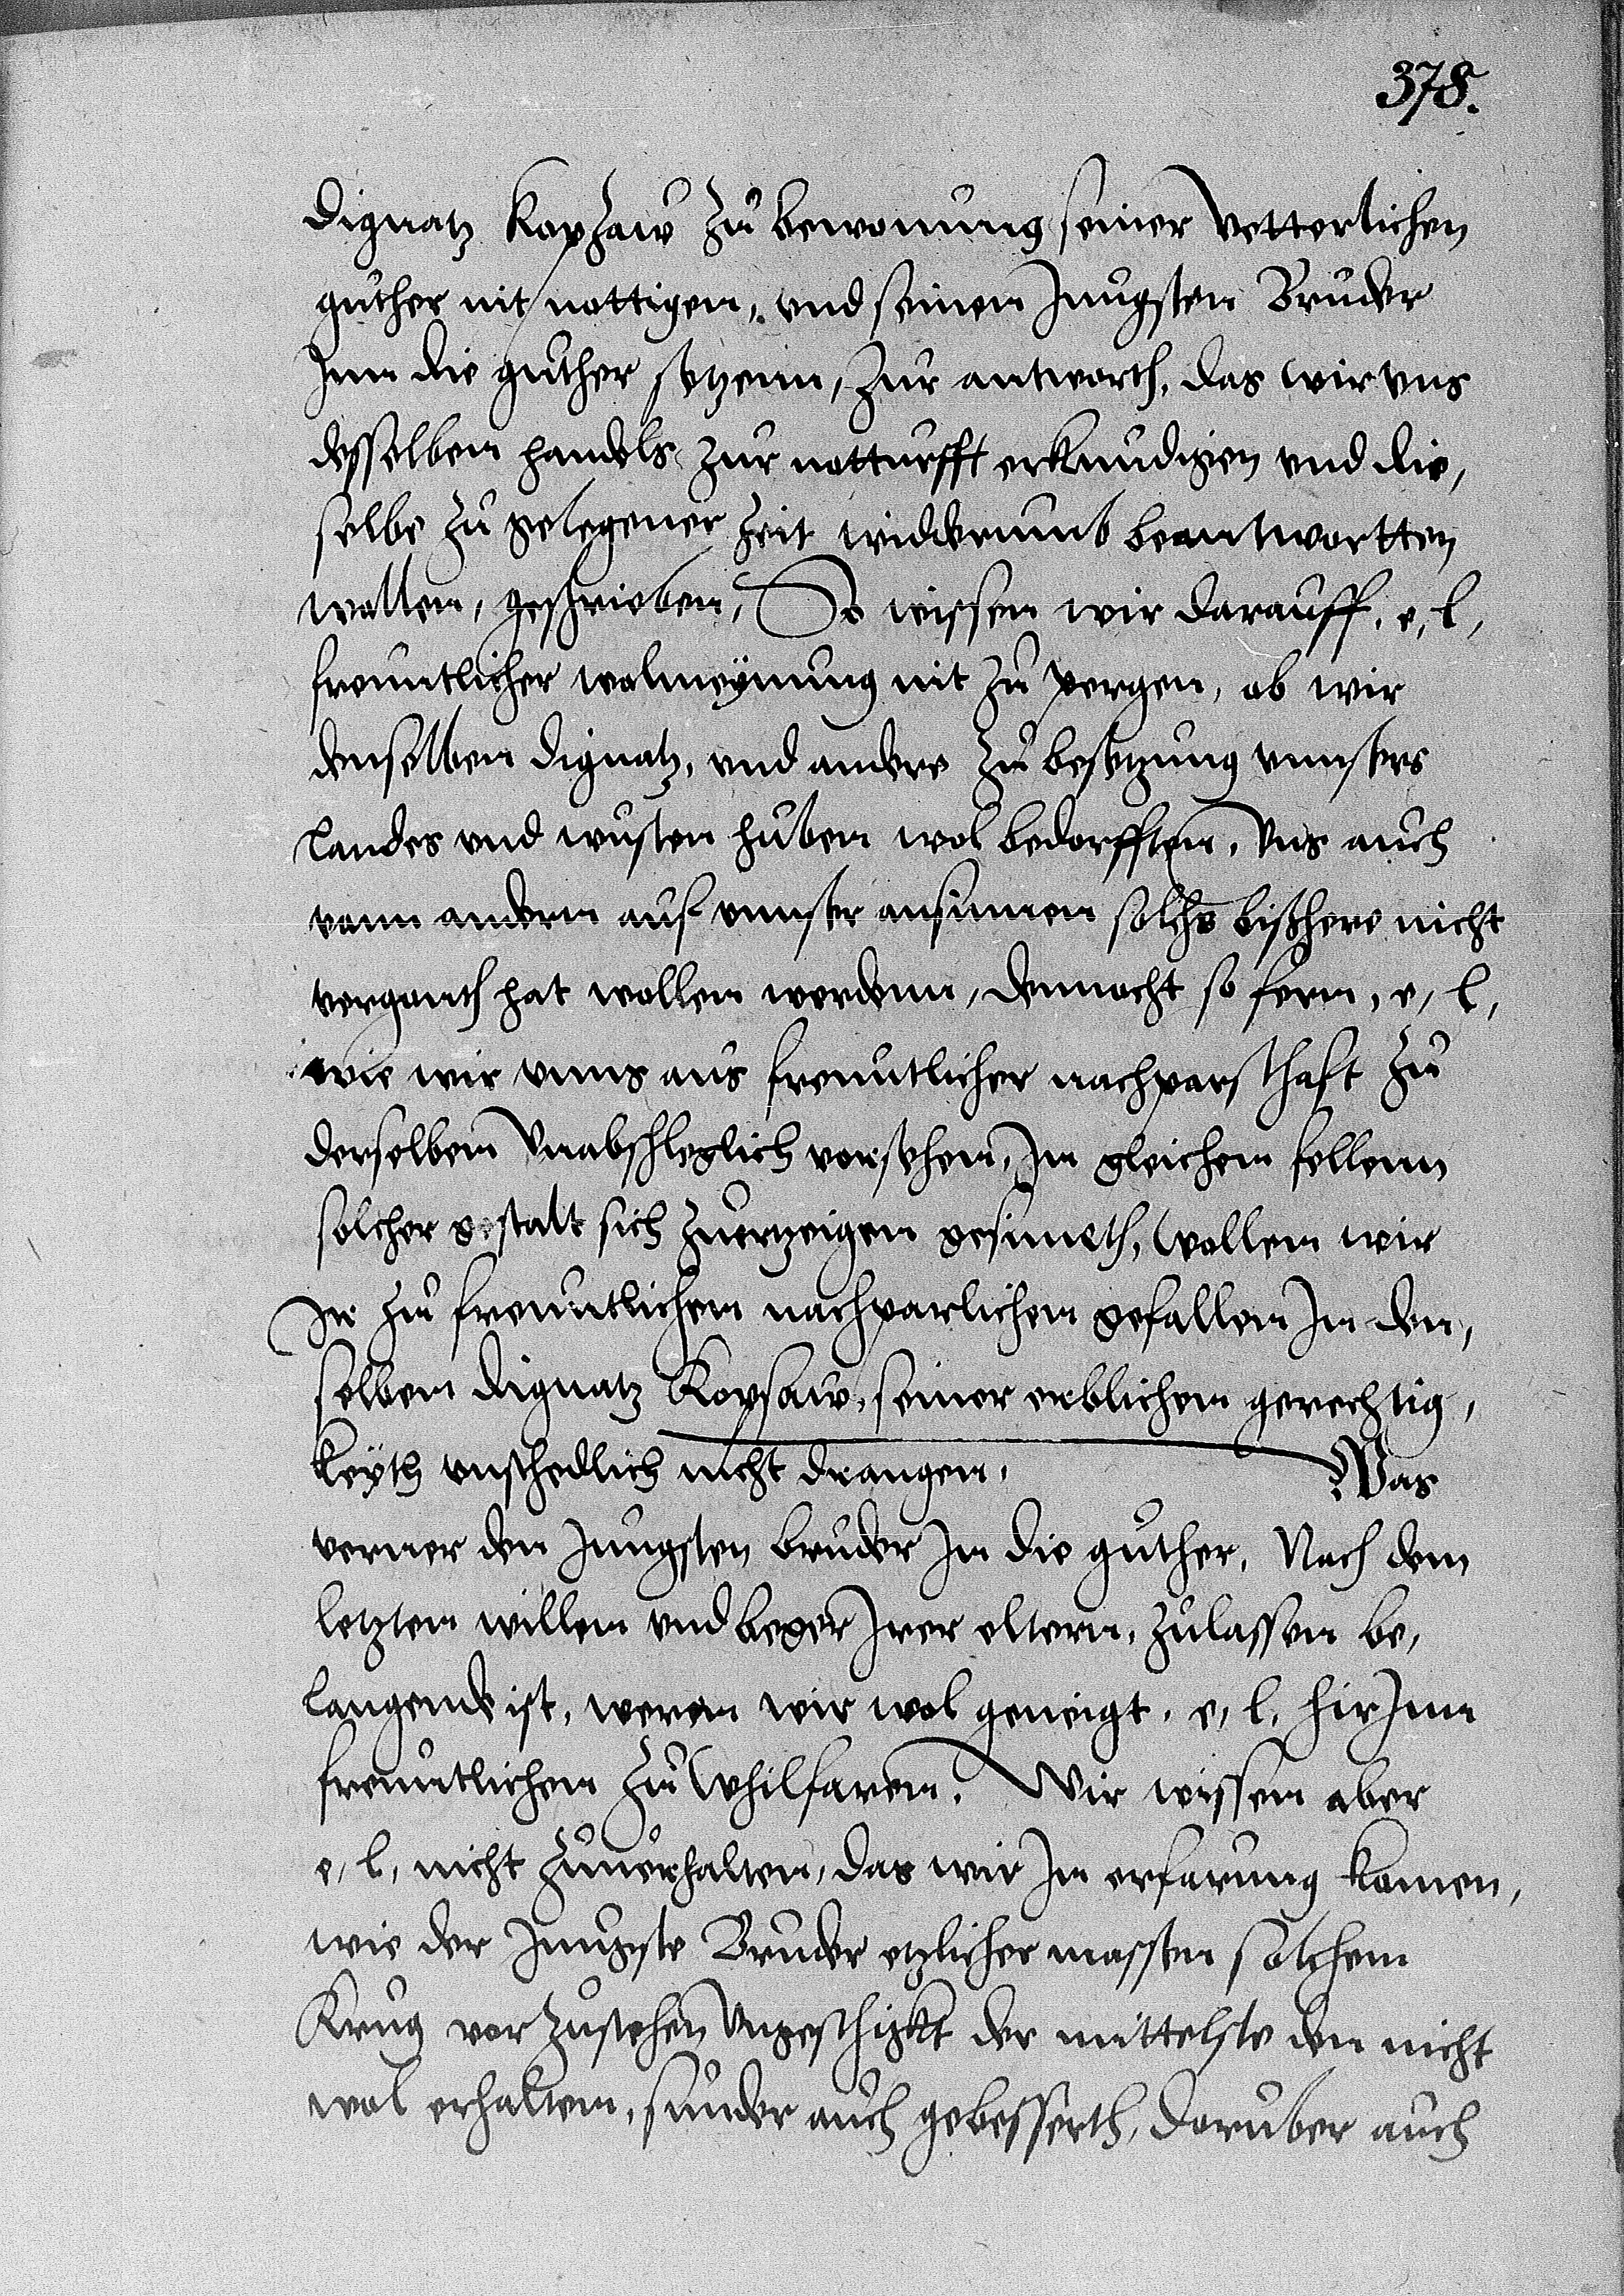 378.
dignatz Kopsaw zu bewonung seiner vetterlichen
guther nit nottigen, und seinen jungsten Bruder
Inn die guther setzenn, zur antworth, das wir uns
desselben handels zur notturfft erkundigen und die,
selbe zu gelegener zeit widderumb beantwortten
wollen, geschrieben, So wissen wir darauff, e, l,
freuntlicher wolmeynung nit zu pergen, ob wir
denselben dignatz, und andere zu besetzung unsers
landes und wusten huben wol bedorfften, Uns auch
vonn andern auf unnser ansinnen solchs bißhere nicht
vergonth hat wollen werdenn, dennocht so fern, e, l,
wie wir unns aus freuntlicher nachparschaft zu
derselben Unabschleglich vorsehen, In gleichem fellenn
solcher gestalt sich zuerzeigen gesinneth, Wollen wir
Ir zu freuntlichem nachparlichem gefallen In den,
selben dignatz Kopsaw, seiner erblichen gerechtig,
keyth unschedlich nicht drangen. Was
verner den Jungsten bruder In die guther, Nach dem
letzten willen und beger Irer eltern, zulassen be,
langende ist, weren wir wol geneigt, e, l, hirInn
freuntlichen zu Whilfaren. Wir wissen aber
e, l, nicht zuuerhalten, das wir In erfarung komen,
wie der Jungste Bruder etzlicher massen solchem
Krug vor zustehen Ungeschickt der mittelste den nicht
wol erhalten, sunder auch gebesserth, daruber auch